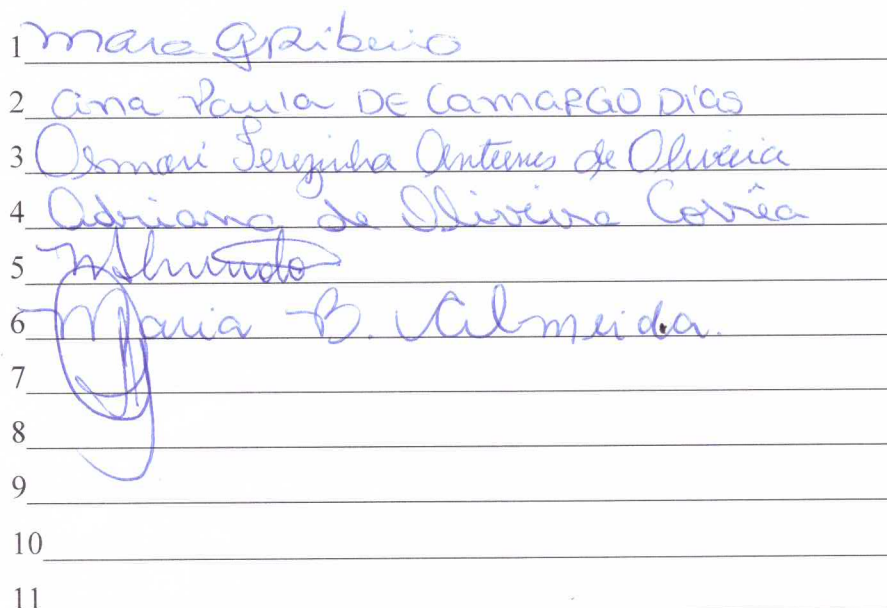 1 Mara G Ribeiro
2 Ana Paula DE CamaRGO Dias
3 Osmari Terezinha Antunes de Oliveira
4 Adriana de Oliveira Corrêa
5
6 Maria B. Almeida.
7
8
9
10
11